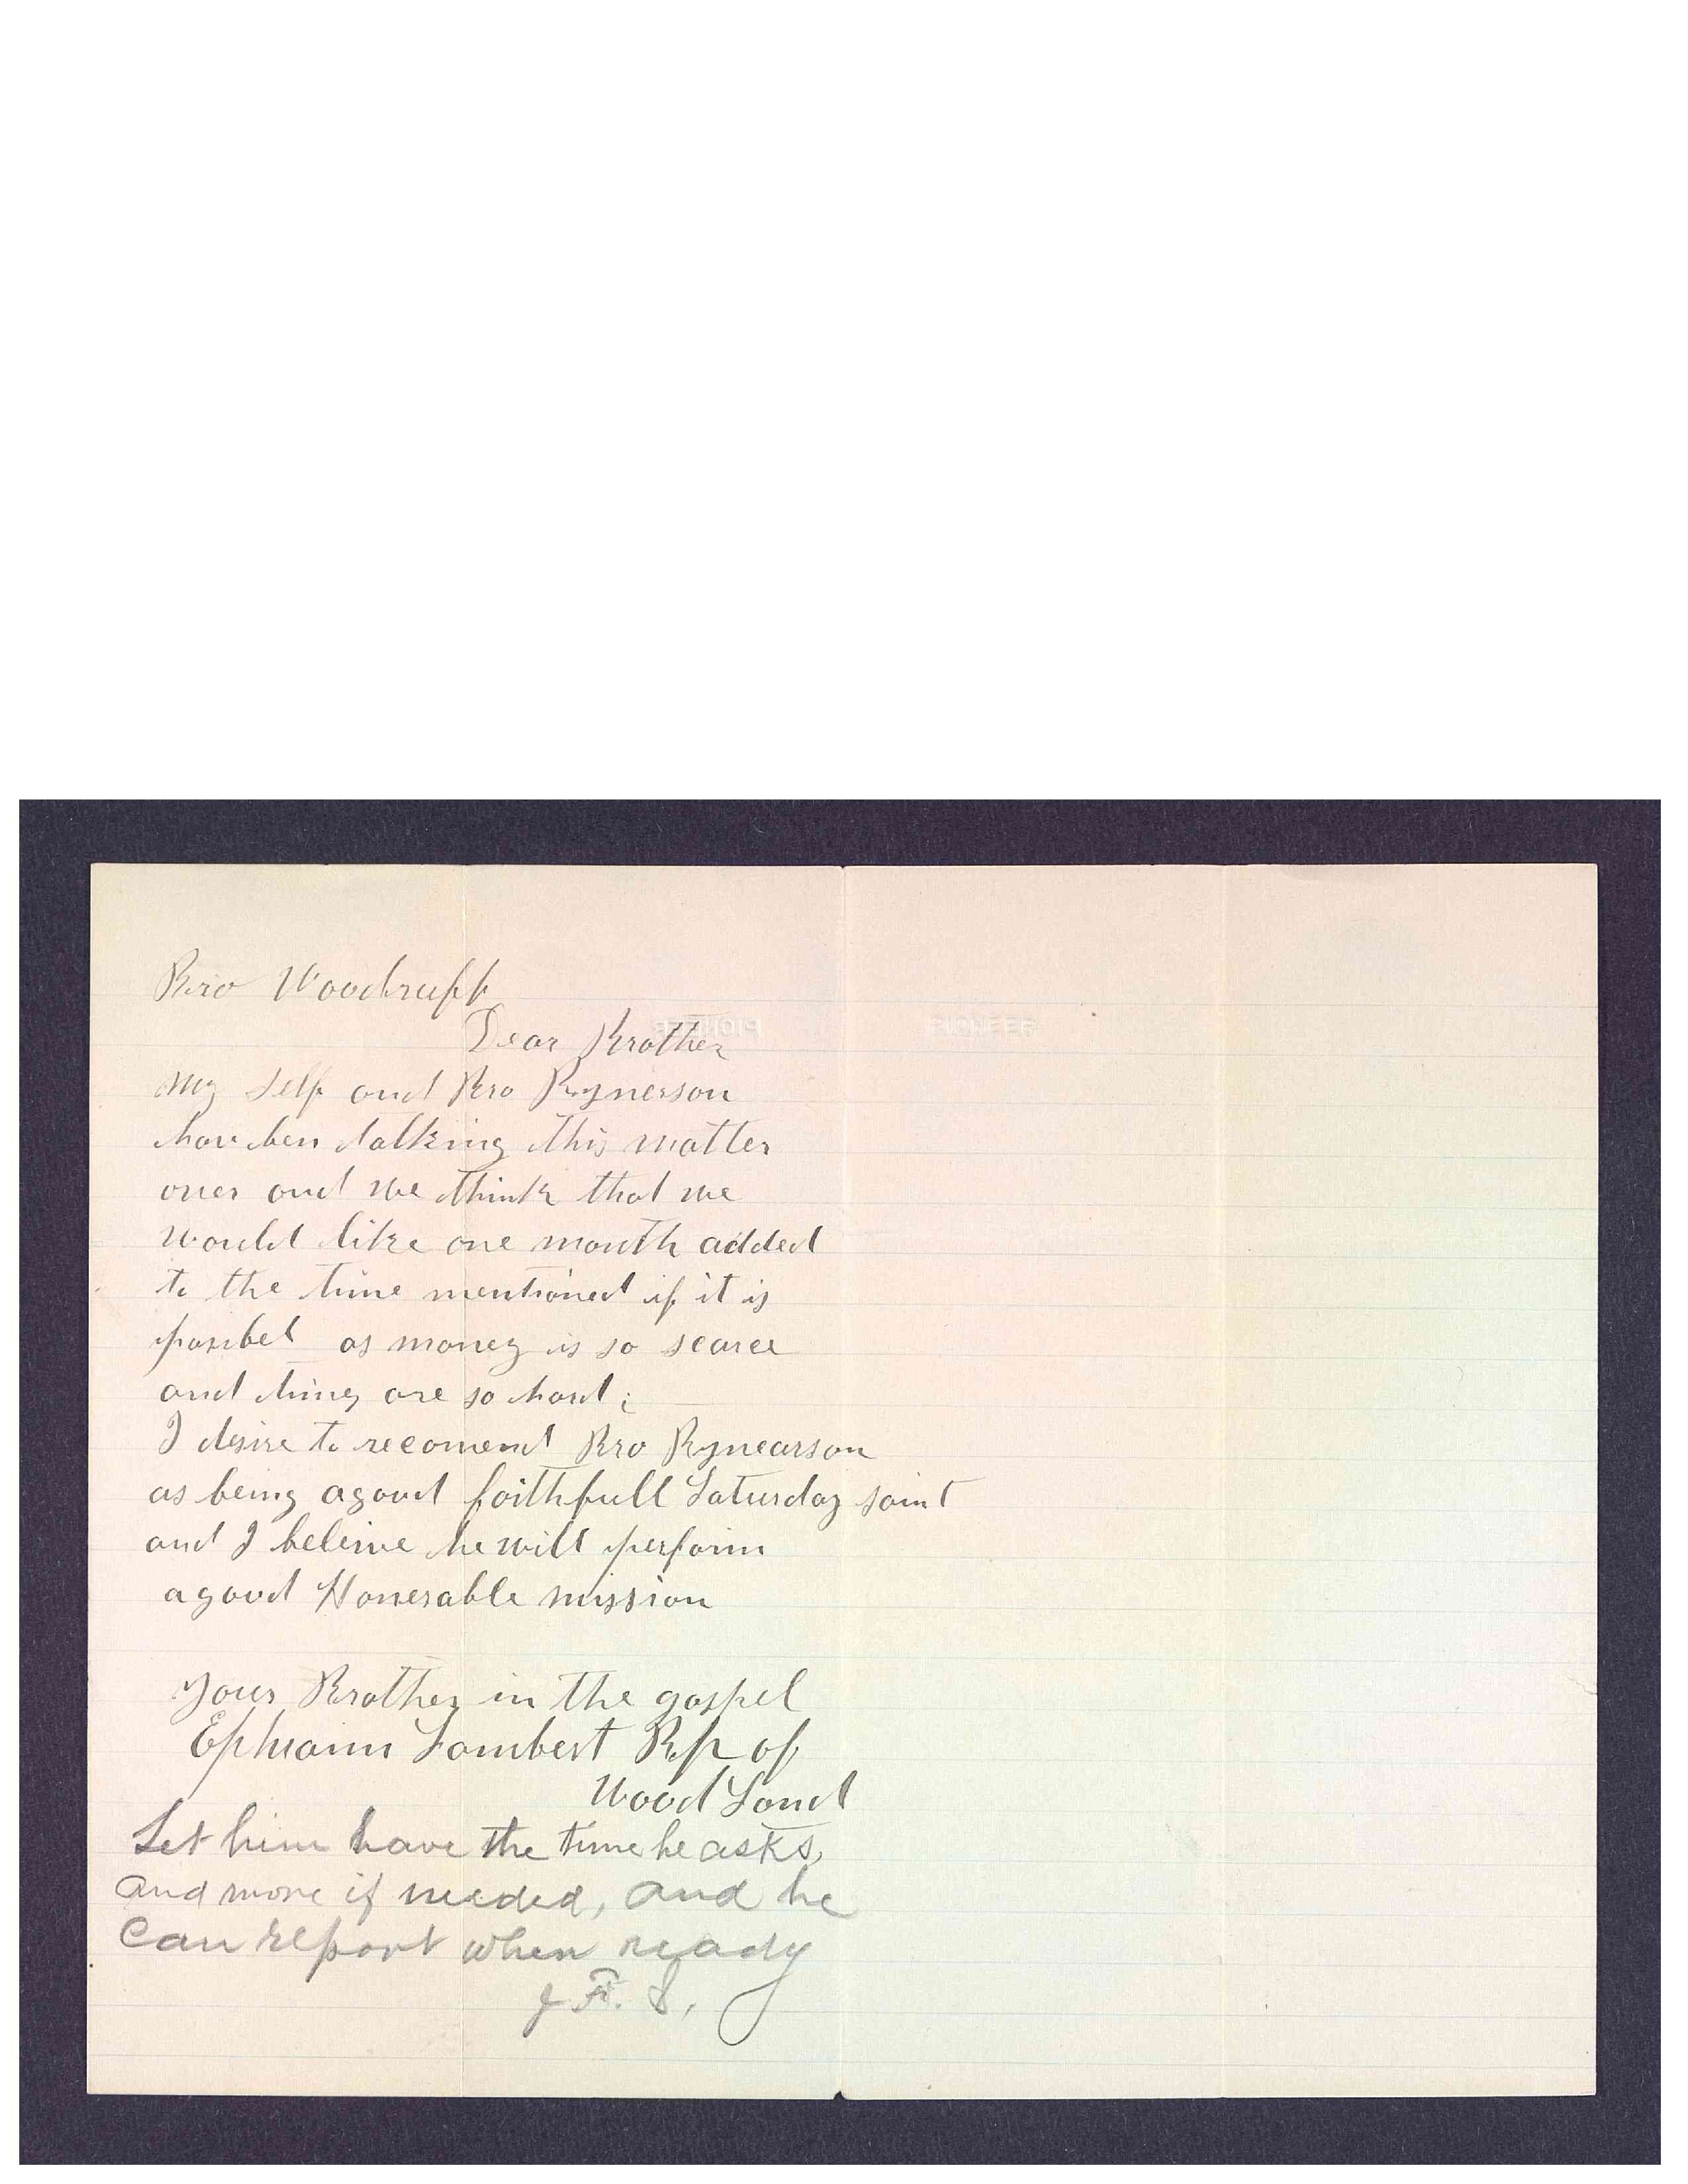 Bro Woodruff
Dear Brother
My Self and Bro Rynerson
hav ben talking this matter
over and we think that we
would like one month added
to the time mentioned if it is
posibel as money is so scarce
and times are so hard;
I desire to recomend Bro Rynearson
as being a good faithfull Saturday saint
and I beleive he will perform
a good Honerable mission
Your Brother in the gospel
Ephraim Lambert Bp of
Wood Land
Let him have the time he asks,
and more if needed, and he
can report when ready
J. F. S.
PIONEER
PIONEER